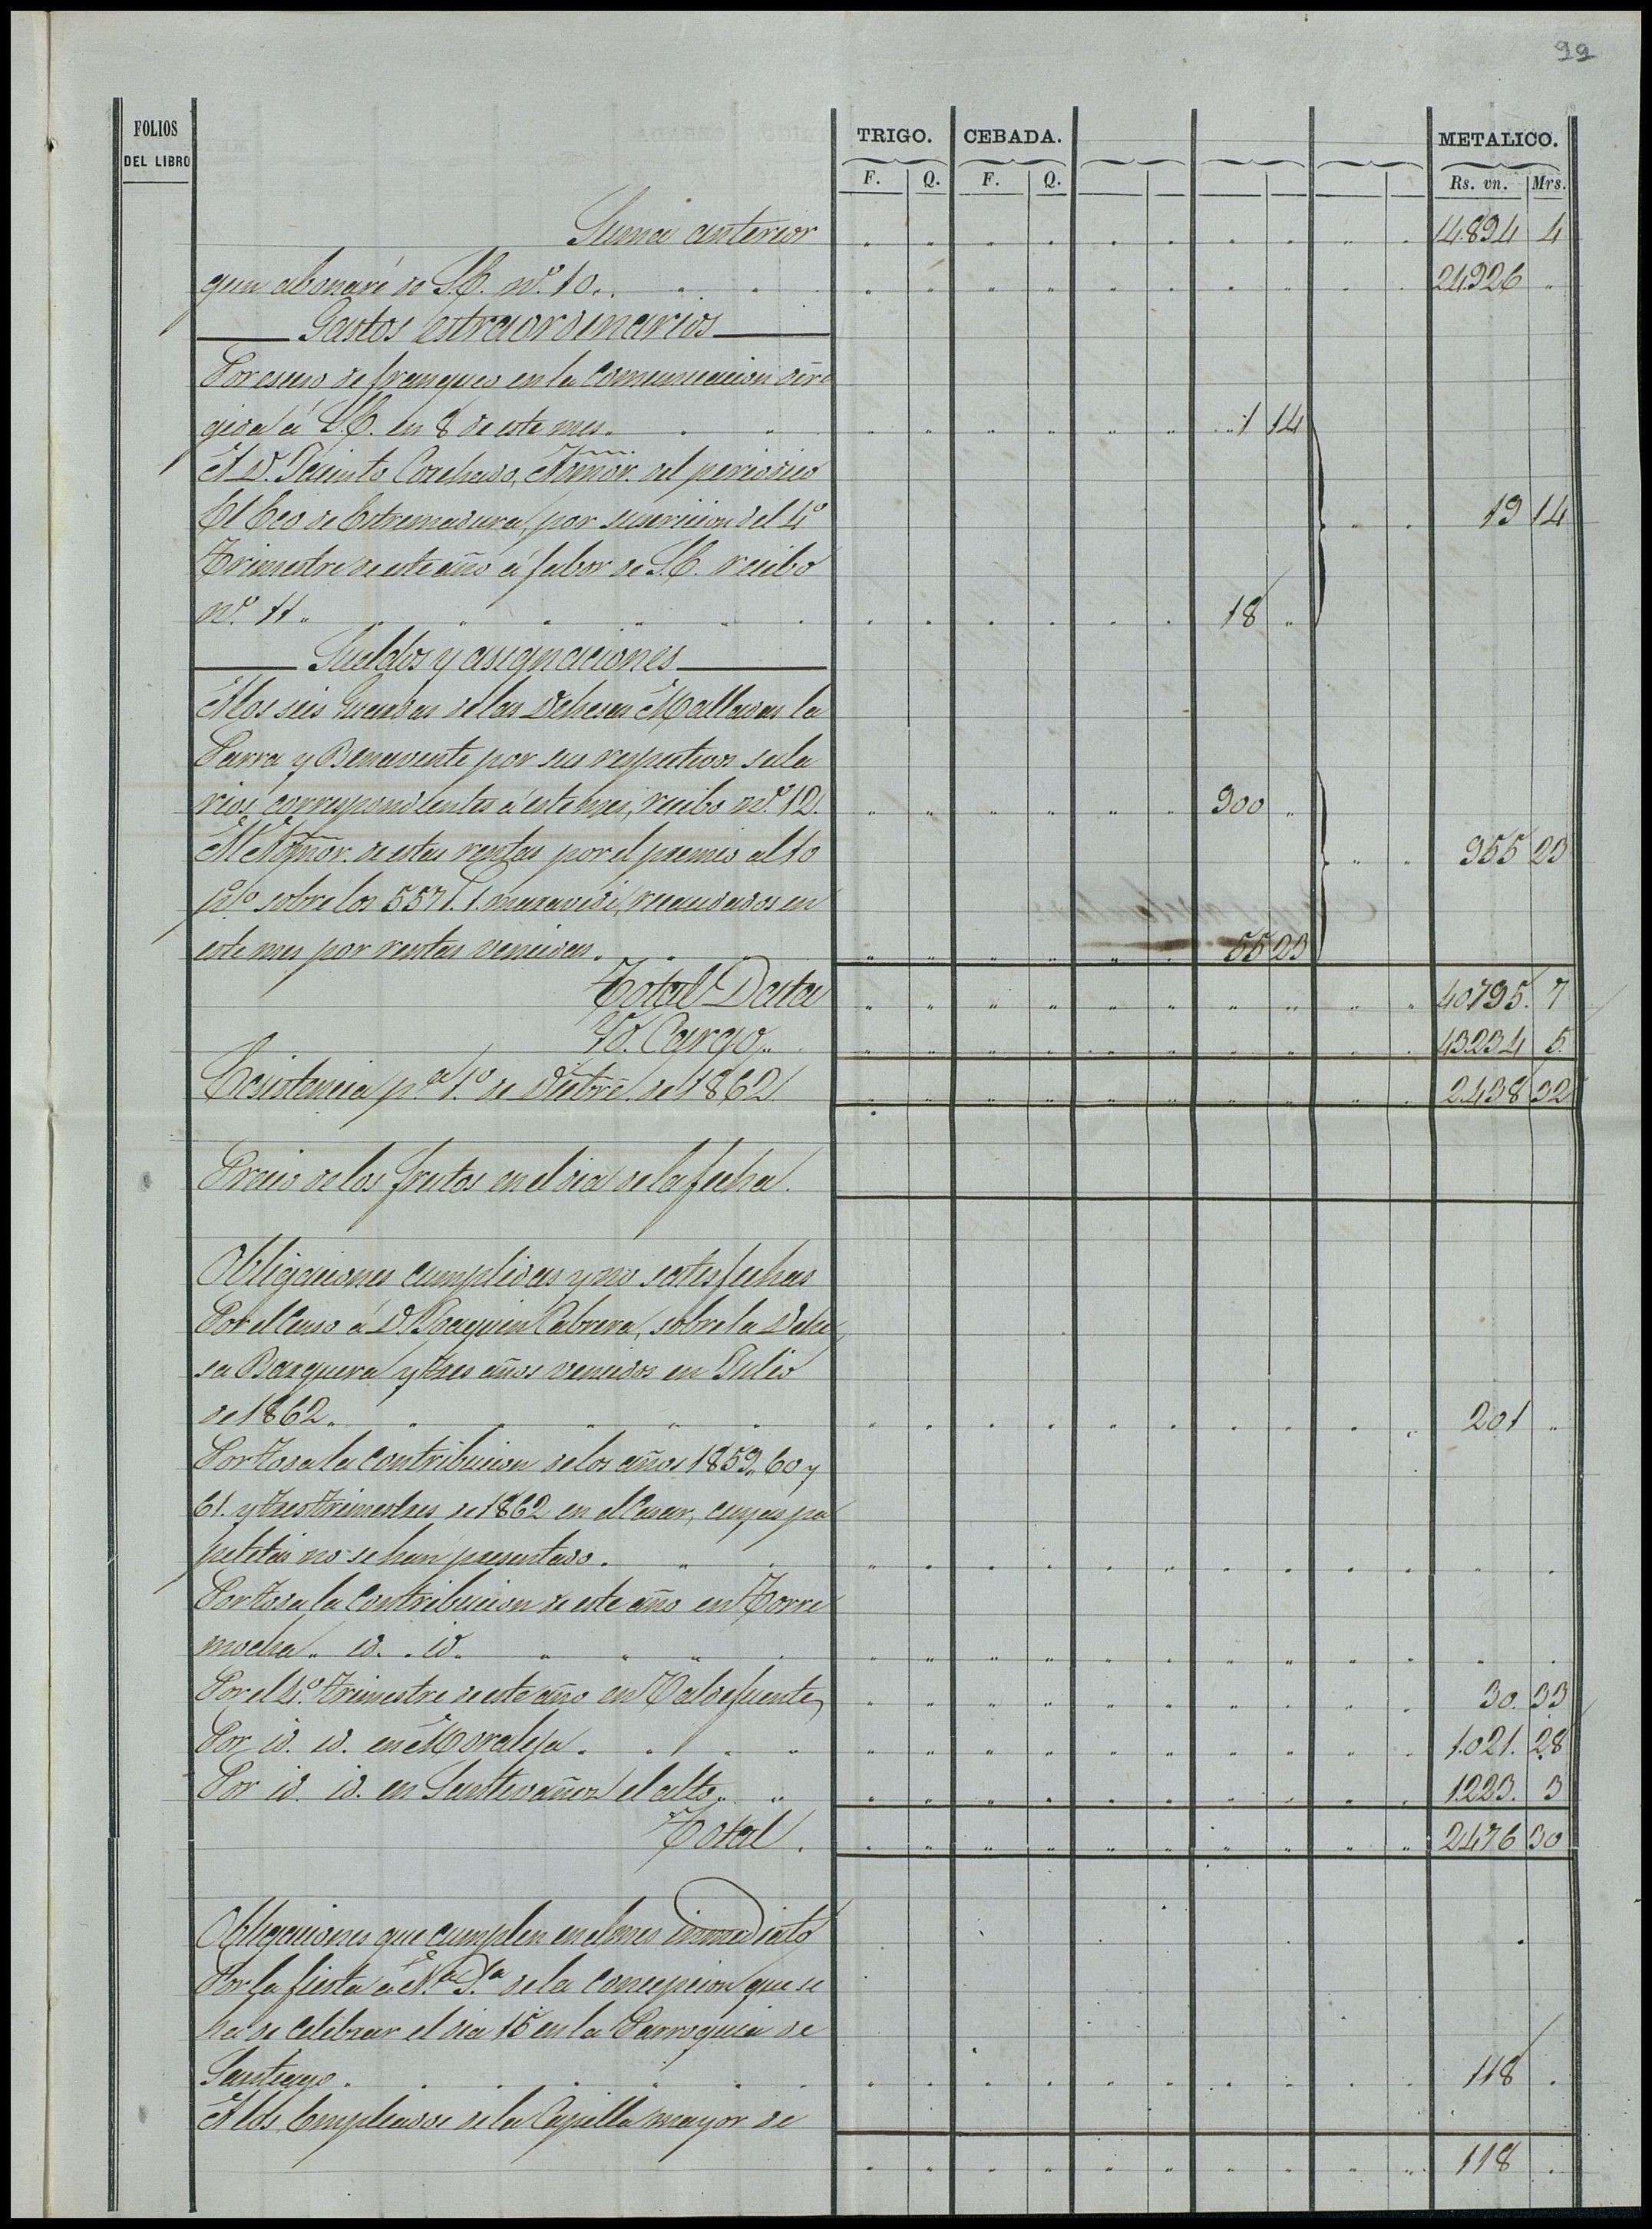 99
FOLIOS DEL LIBRO
TRIGO. CEBADA. METALICO.
F. Q. F. Q. Rs. vn. Mrs.
Suma anterior 14.894 4
gun abonaré de S.E. nº. 10. 24.926 "
Gastos estraordinarios
Por esceso de franqueo en la comunicacion diri
gida á S.E. en 8 de este mes. 1 14
A D. Jacinto Corchado, Admor. del periodico
El Eco de Estremadura, por suscricion del 4º
trimestre de este año á fabor de S.E. recibo 19 14
nº. 11 18 "
Sueldos y asignaciones
A los seis Guardas de las Dehesas Malladas la
Parra y Benavente por sus respectivos sala
rios, correspondientes á este mes, recibo nº. 12. 900 "
Al Admor. de estas rentas por el premio al 10 955 23
p% sobre los 557 r. 1. maravedi, recaudados en
este mes por rentas vencidas. 55 23
Total Data 40.795. 7
Yd. Cargo 43.234 5
Ecsistencia pª. 1º. de Dicbre. de 1862 2.438 32
Precio de los frutos en el dia de la fecha.
Obligaciones cumplidas y no satisfechas
Por el Censo á D. Joaquin Cabrera, sobre la Dehe
sa Barquera y tres años vencidos en Julio
de 1862. 201 "
Por toda la contribucion de los años 1859. 60 y
61. y tres trimestres de 1862 en el Casar, cuyas pa
peletas no se han presentado.
Por toda la Contribucion de este año en Torre
mocha. id. id.
Por el 4º. trimestre de este año en Valdefuentes 30. 33
Por id. id. en Moraleja. 1.021. 28
Por id. id. en Santivañez el alto. 1.223. 3
Total. 2.476 30
Obligaciones que cumplen en el mes inmediato
Por la fiesta á Nª. Sª. de la Concepcion que se
ha de celebrar el dia 15 en la Parroquia de
Santiago. 118 "
A los Empleados de la Capilla mayor de
118